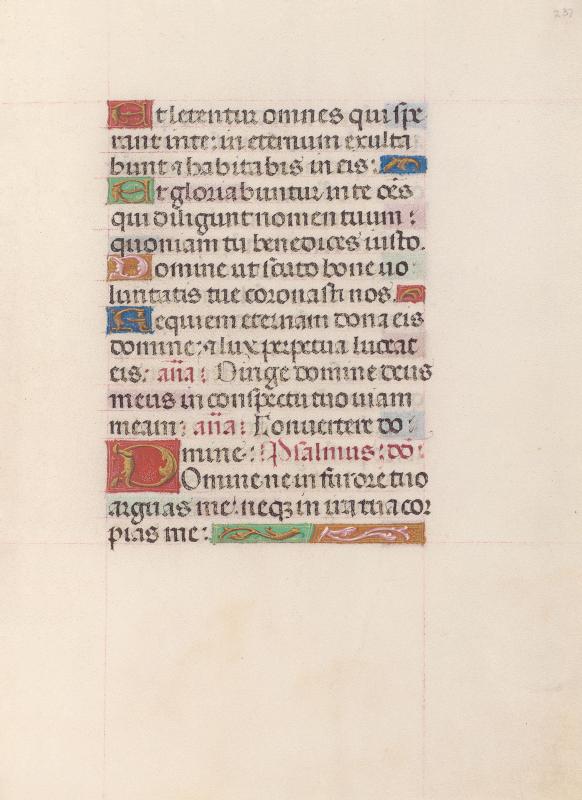 237
Et letentur omnes qui spe
rant in te: in eternum exulta
bunt ⁊ habitabis in eis:
Et gloriabuntur in te oēs
qui diligunt nomen tuum:
quoniam tu benedices iusto.
Domine ut scuto bone uo
luntatis tue coronasti nos.
Requiem eternam dona eis
domine: ⁊ lux perpetua luceat
eis: an̄a: Dirige domine deus
meus in conspectu tuo uiam
meam: an̄a: Conuertere do:
mine: Psalmus: dō:
Domine ne in furore tuo
arguas me: neqꝫ in ira tua cor
pias me: